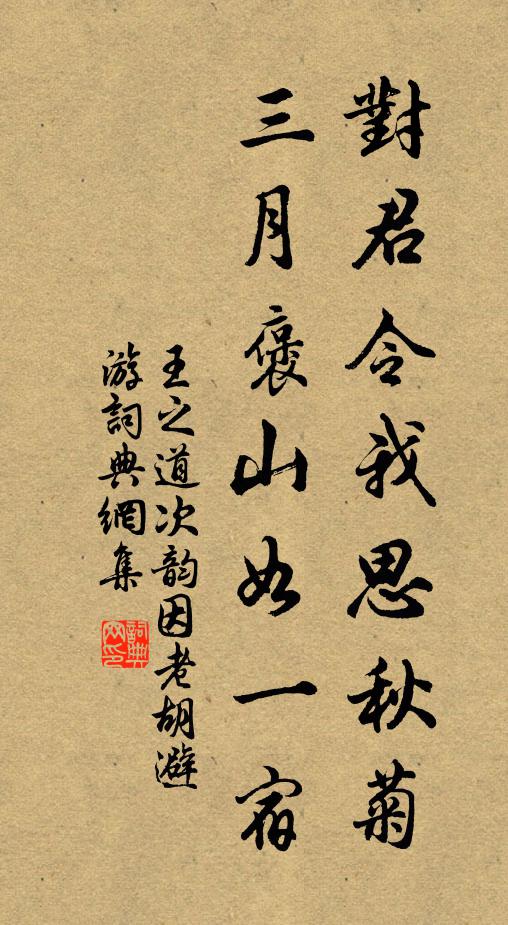 對君令我思秋菊
三月褒山如一宿
王之道次韵因老胡避
游詞典網集
詞典網印